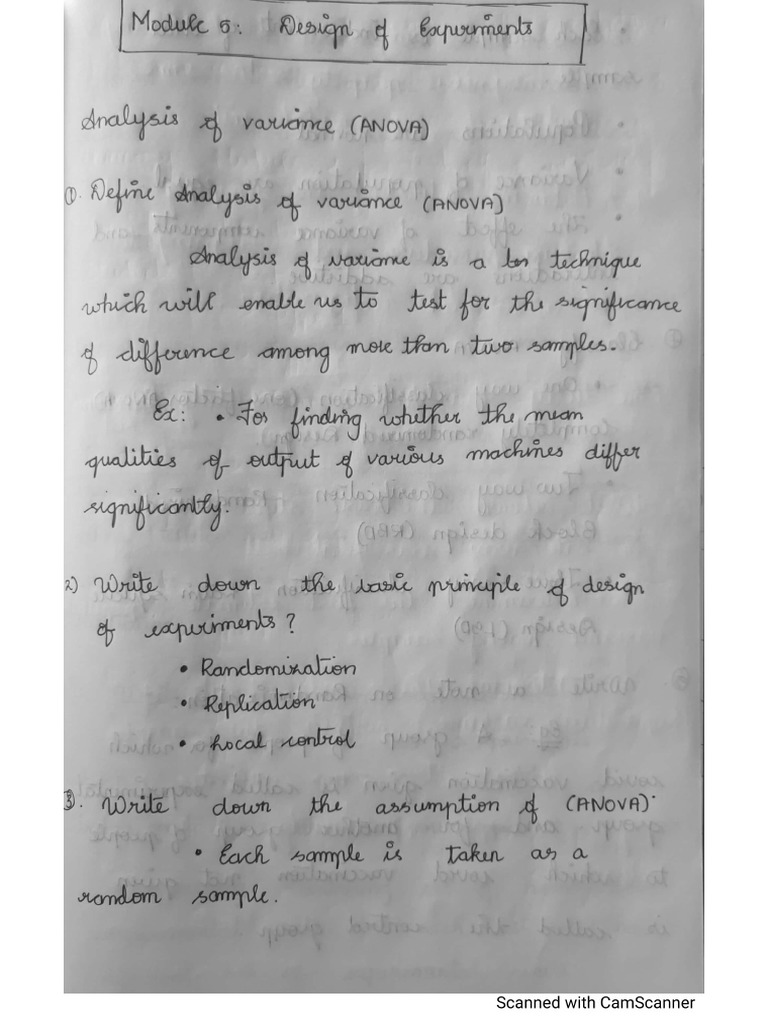 Module 5: Design of Experiments
Analysis of variance (ANOVA)
①. Define Analysis of variance (ANOVA)
Analysis of variance is a technique
which will enable us to test for the significance
of difference among more than two samples.
Ex: • For finding whether the mean
qualities of output of various machines differ
significantly.
2) Write down the basic principle of design
of experiments?
• Randomization
• Replication
• Local control
3. Write down the assumption of (ANOVA).
• Each sample is taken as a
random sample.
Scanned with CamScanner